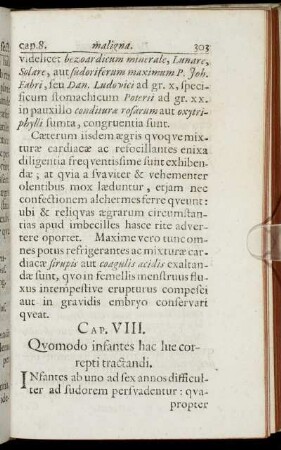 cap. 8. maligna. 303
videlicet bezoardicum minerale, Lunare,
Solare, aut sudoriferum maximum P. Joh.
Fabri, seu Dan. Ludovici ad gr. x, speci-
ficum stomachicum Poterii ad gr. xx.
in pauxillo condituræ rosarum aut oxytri-
phylli sumta, congruentia sunt.
Cæterum iisdem ægris qvoqve mix-
turæ cardiacæ ac refocillantes enixa
diligentia freqventissime sunt exhiben-
dæ; at qvia a svaviter & vehementer
olentibus mox læduntur, etjam nec
confectionem alchermes ferre qveunt:
ubi & reliqvas ægrarum circumstan-
tias apud imbecilles hasce rite adver-
tere oportet. Maxime vero tunc om-
nes potus refrigerantes ac mixturæ car-
diacæ sirupis aut coagulis acidis exaltan-
dæ sunt, qvo in femellis menstruus flu-
xus intempestive erupturus compesci
aut in gravidis embryo conservari
qveat.
CAP. VIII.
Qvomodo infantes hac lue cor-
repti tractandi.
INfantes ab uno ad sex annos difficul-
ter ad sudorem persvadentur: qva-
propter